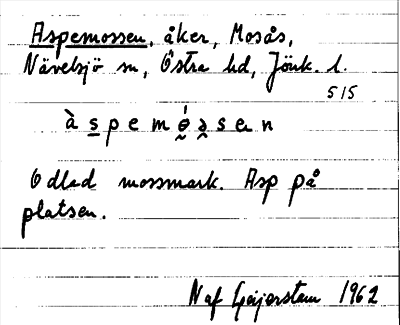 Aspemossen, åker, Mosås,
Nävelsjö sn, Östra hd, Jönk. l.
515
à s p e m ó̰ ə̯ s e n
Odlad mossmark. Asp på
platsen.
N af Geijerstam 1962